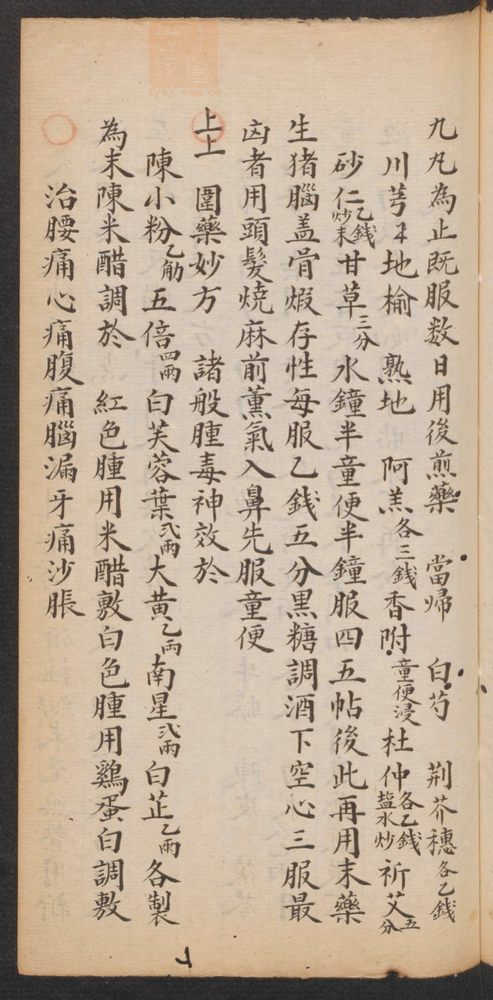 九凡為止既服数日用後煎藥 當帰 白芍 荆芥穗各乙錢
川芎 地榆 熟地 阿羔各三錢香附童便浸杜仲各乙錢盐水炒祈艾五分
砂仁乙錢炒末甘草三分水鐘半童便半鐘服四五帖後此再用末藥
生猪腦盖骨煆存性每服乙錢五分黒糖調酒下空心三服最
凶者用頭髮燒麻前薰氣入鼻先服童便
上上 圍藥妙方 諸般腫毒神效於
陳小粉乙觔五倍四両白芙蓉葉弍両大黄乙両南星弍両白芷乙両各製
為末陳米醋調於 紅色腫用米醋敷白色腫用鷄蛋白調敷
治腰痛心痛腹痛腦漏牙痛沙脹